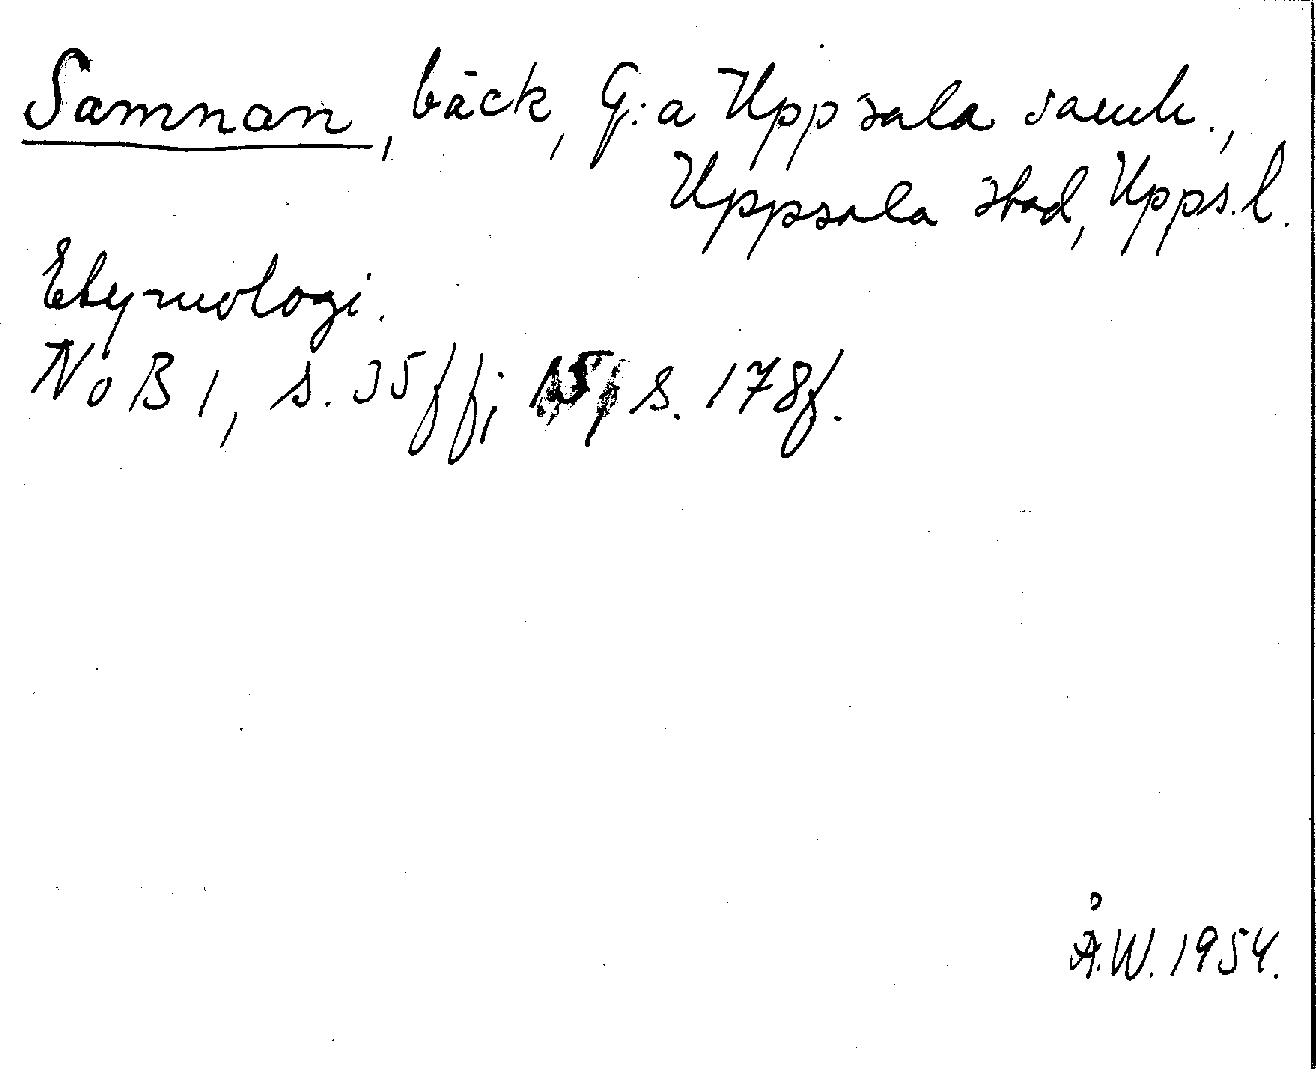 Samnan, bäck, G:a Uppsala samh.,
Uppsala stad, Upps.l.
Etymologi.
NoB 1, s. 35ff; 15, s. 178f.
Å.W. 1954.